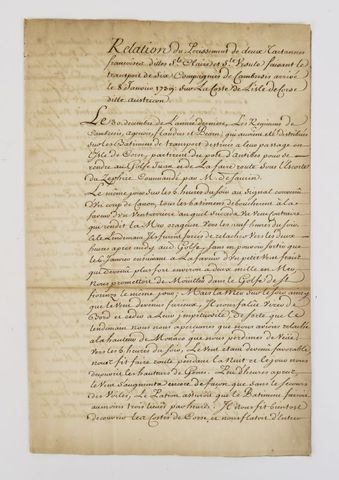 Relation du Perissiment de deux Tartannes
françoises, dittes Ste Claire et Ste Ursule faisant le
transport de Six Compagnies de Cambresis arrivé
le 8 Janvier 1739 sur La Coste de L'isle de Corse
ditte
Le 30 decembre de L'année derniere, Le Regiment de
Cambresis, agenois, flandres et Bearn, qui avoient été distribués
sur les Batimens de transport destinés a leur passage en
L'isle de Corse, partirent du port d'antibes pour se
rendre au Golfe Juan, et de La faire route sous L'escorte
du Zephire Commandé par M. de
Le même jour sur les 6 heures du soir au signal convenu
d'un coup de Canon, tous les batimens deboucherent a la
faveur d'un Vent arriere, auquel succeda un Vent contraire
qui rendit la Mer orageuse Vers les neuf heures du soir,
et Le Lendemain Ils furent forcés de relacher Vers les deux
heures apres midy au Golfe, sans en pouvoir sortir que
le 6 Janvier ensuivant a La faveur d'un petit Vent frais
qui devenu plus fort environ a deux mille en Mer,
nous promettoit de Mouiller dans Le Golfe de St
fiorenzo le même jour; Mais La Mer sur Le soir ainsy
que le Vent devenus furieux, Il nous falut Virer de
Bord et ceder a Leur impetuosité, De sorte que le
lendemain nous nous aperçumes que nous avions relaché
a la hauteur de Monaco que nous perdimes de Vüe
Vers les 6 heures du soir, Le Vent etant devenu favorable
nous fit faire route pendant la Nuit et Le jour nous
decouvrit les hauteurs de Genes. Peu d'heures apres
le Vent S'augmenta encore de façon, que sans le secours
des Voiles, Le Patron assuroit que Le Batiment faisoit
au moins trois lieües par heure; Il Nous fit bientost
decouvrir les Costes de Corse, et nous flatoit d'entrer